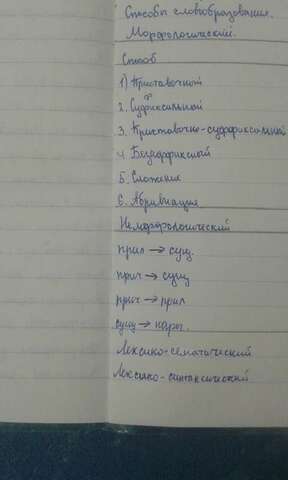 Способы словообразования.
Морфологический.
Способ
1) Приставочный
2. Суффиксальной
3. Приставочно-суффиксальной
4. Безаффиксный
5. Сложение
6. Абривиация
Неморфологический
прил → сущ.
прич → сущ
прич → прил
сущ → нареч.
Лексико-сематический
Лексико-синтаксический